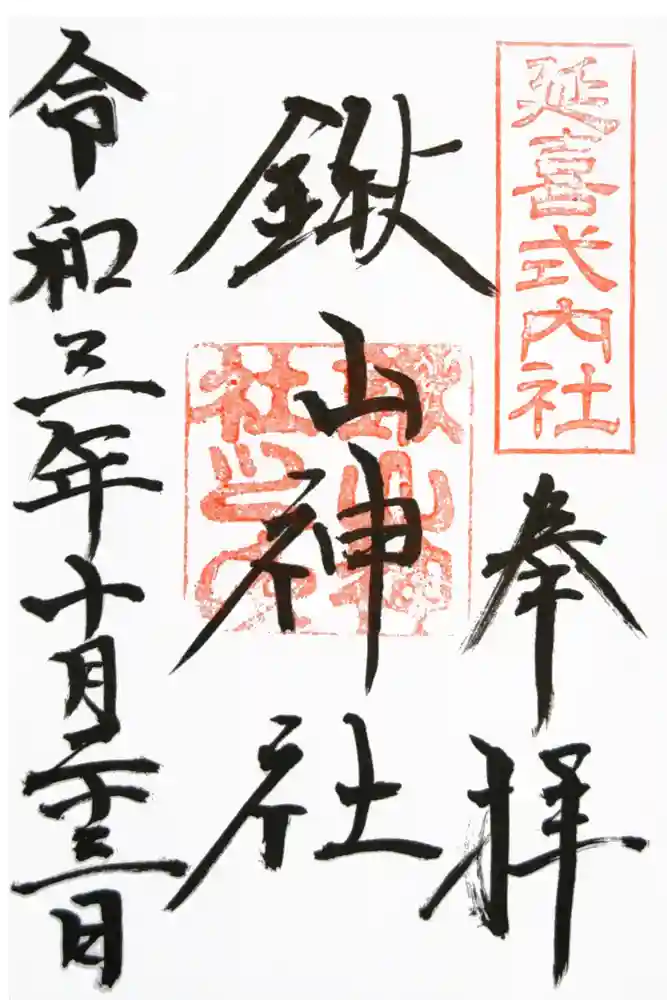 延喜式内社
奉拝
鍬山神社
鍬山神
社之印
令和三年十月二十三日